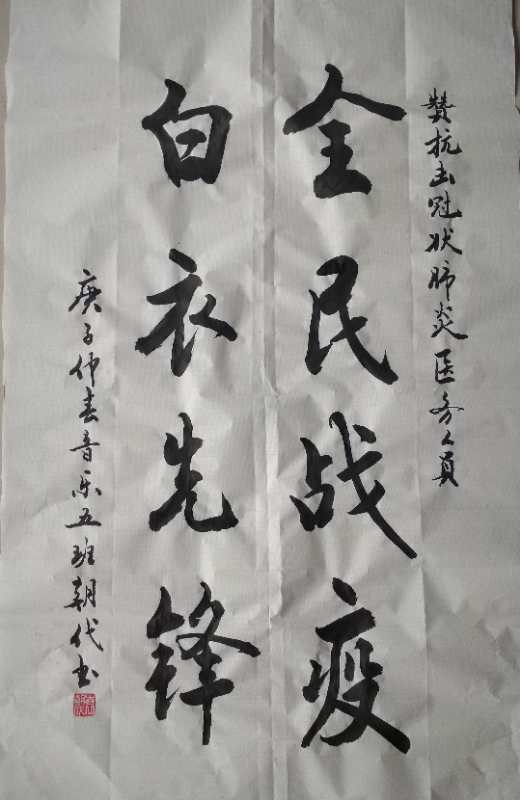 赞抗击冠状肺炎医务人员
全民战疫
白衣先锋
庚子仲春音乐五班朝代书